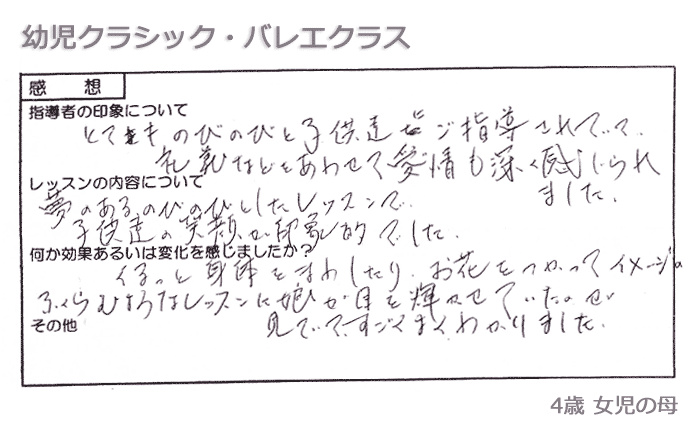 幼児クラシック・バレエクラス
感　想
指導者の印象について
とてものびのびと子供達をご指導されていて、
礼義などをあわせて愛情も深く感じられ
ました。
レッスンの内容について
夢のあるのびのびとしたレッスンで、
子供達の笑顔が印象的でした。
何か効果あるいは変化を感じましたか？
くるっと身体をまわしたり、お花をつかってイメージの
ふくらむようなレッスンに娘が目を輝かせていたのが
見ていてすごくよくわかりました。
その他
4歳 女児の母